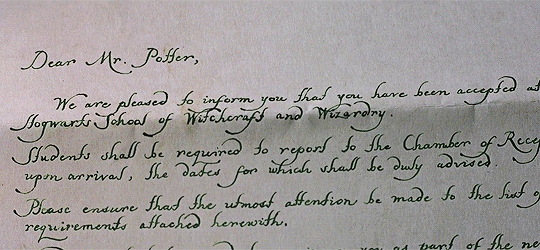 Dear Mr. Potter,
We are pleased to inform you that you have been accepted at
Hogwarts School of Witchcraft and Wizardry.
Students shall be required to report to the Chamber of Recep
upon arrival, the dates for which shall be duly advised.
Please ensure that the utmost attention be made to the list of
requirements attached herewith.
you as part of the ne